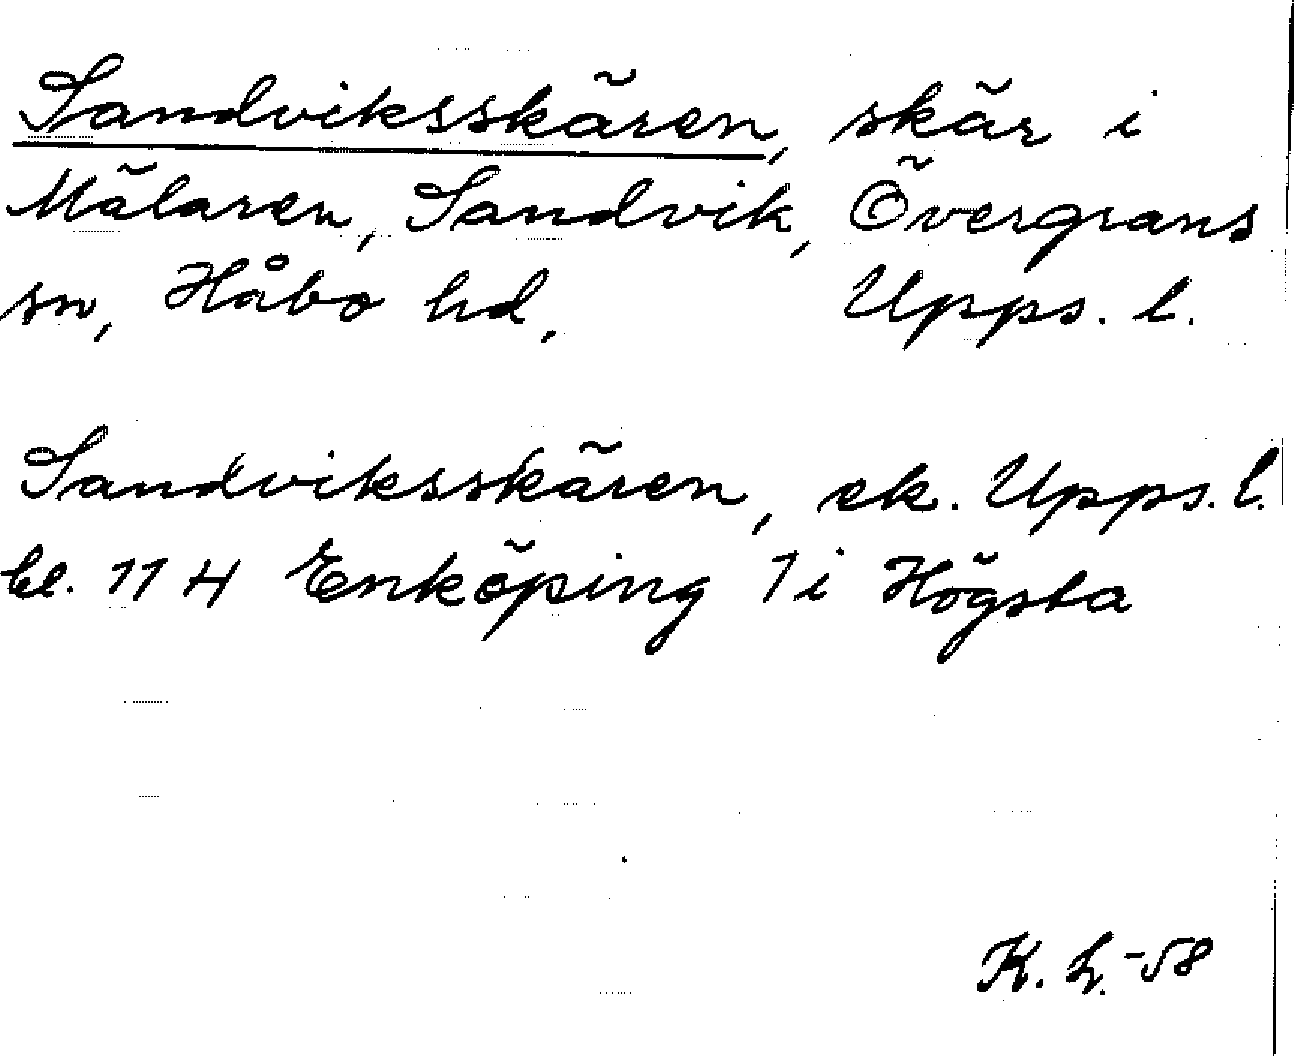 Sandviksskären, skär i
Mälaren, Sandvik, Övergrans
sn, Håbo hd, Upps. l.
Sandviksskären, ek. Upps. l.
bl. 11 H Enköping 1 i Högsta
K. L. -58